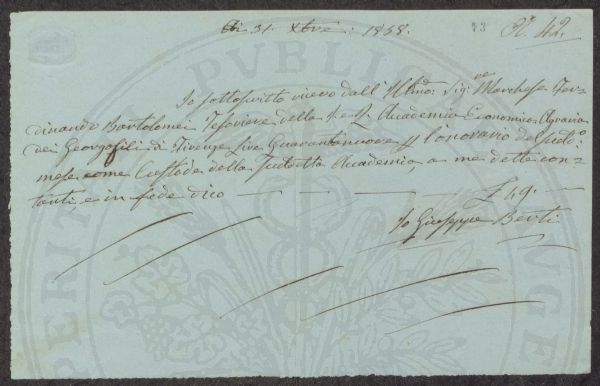 Adi 31. Xbre: 1858. 73 N. 42.
Io sottoscritto ricevo dall' Illmo: Sig:re Marchese Fer=
dinando Bartolomei Tesoriere della I. e R. Accademia Economico Agraria
dei Georgofili di Firenze Lire Quarantanove p l'onorario del sud.o
mese come Custode della Sudetta Accademia, a me dette con=
tanti, e in fede dico £ 49.
Io Giuseppe Berti
PERIT PUBLICA